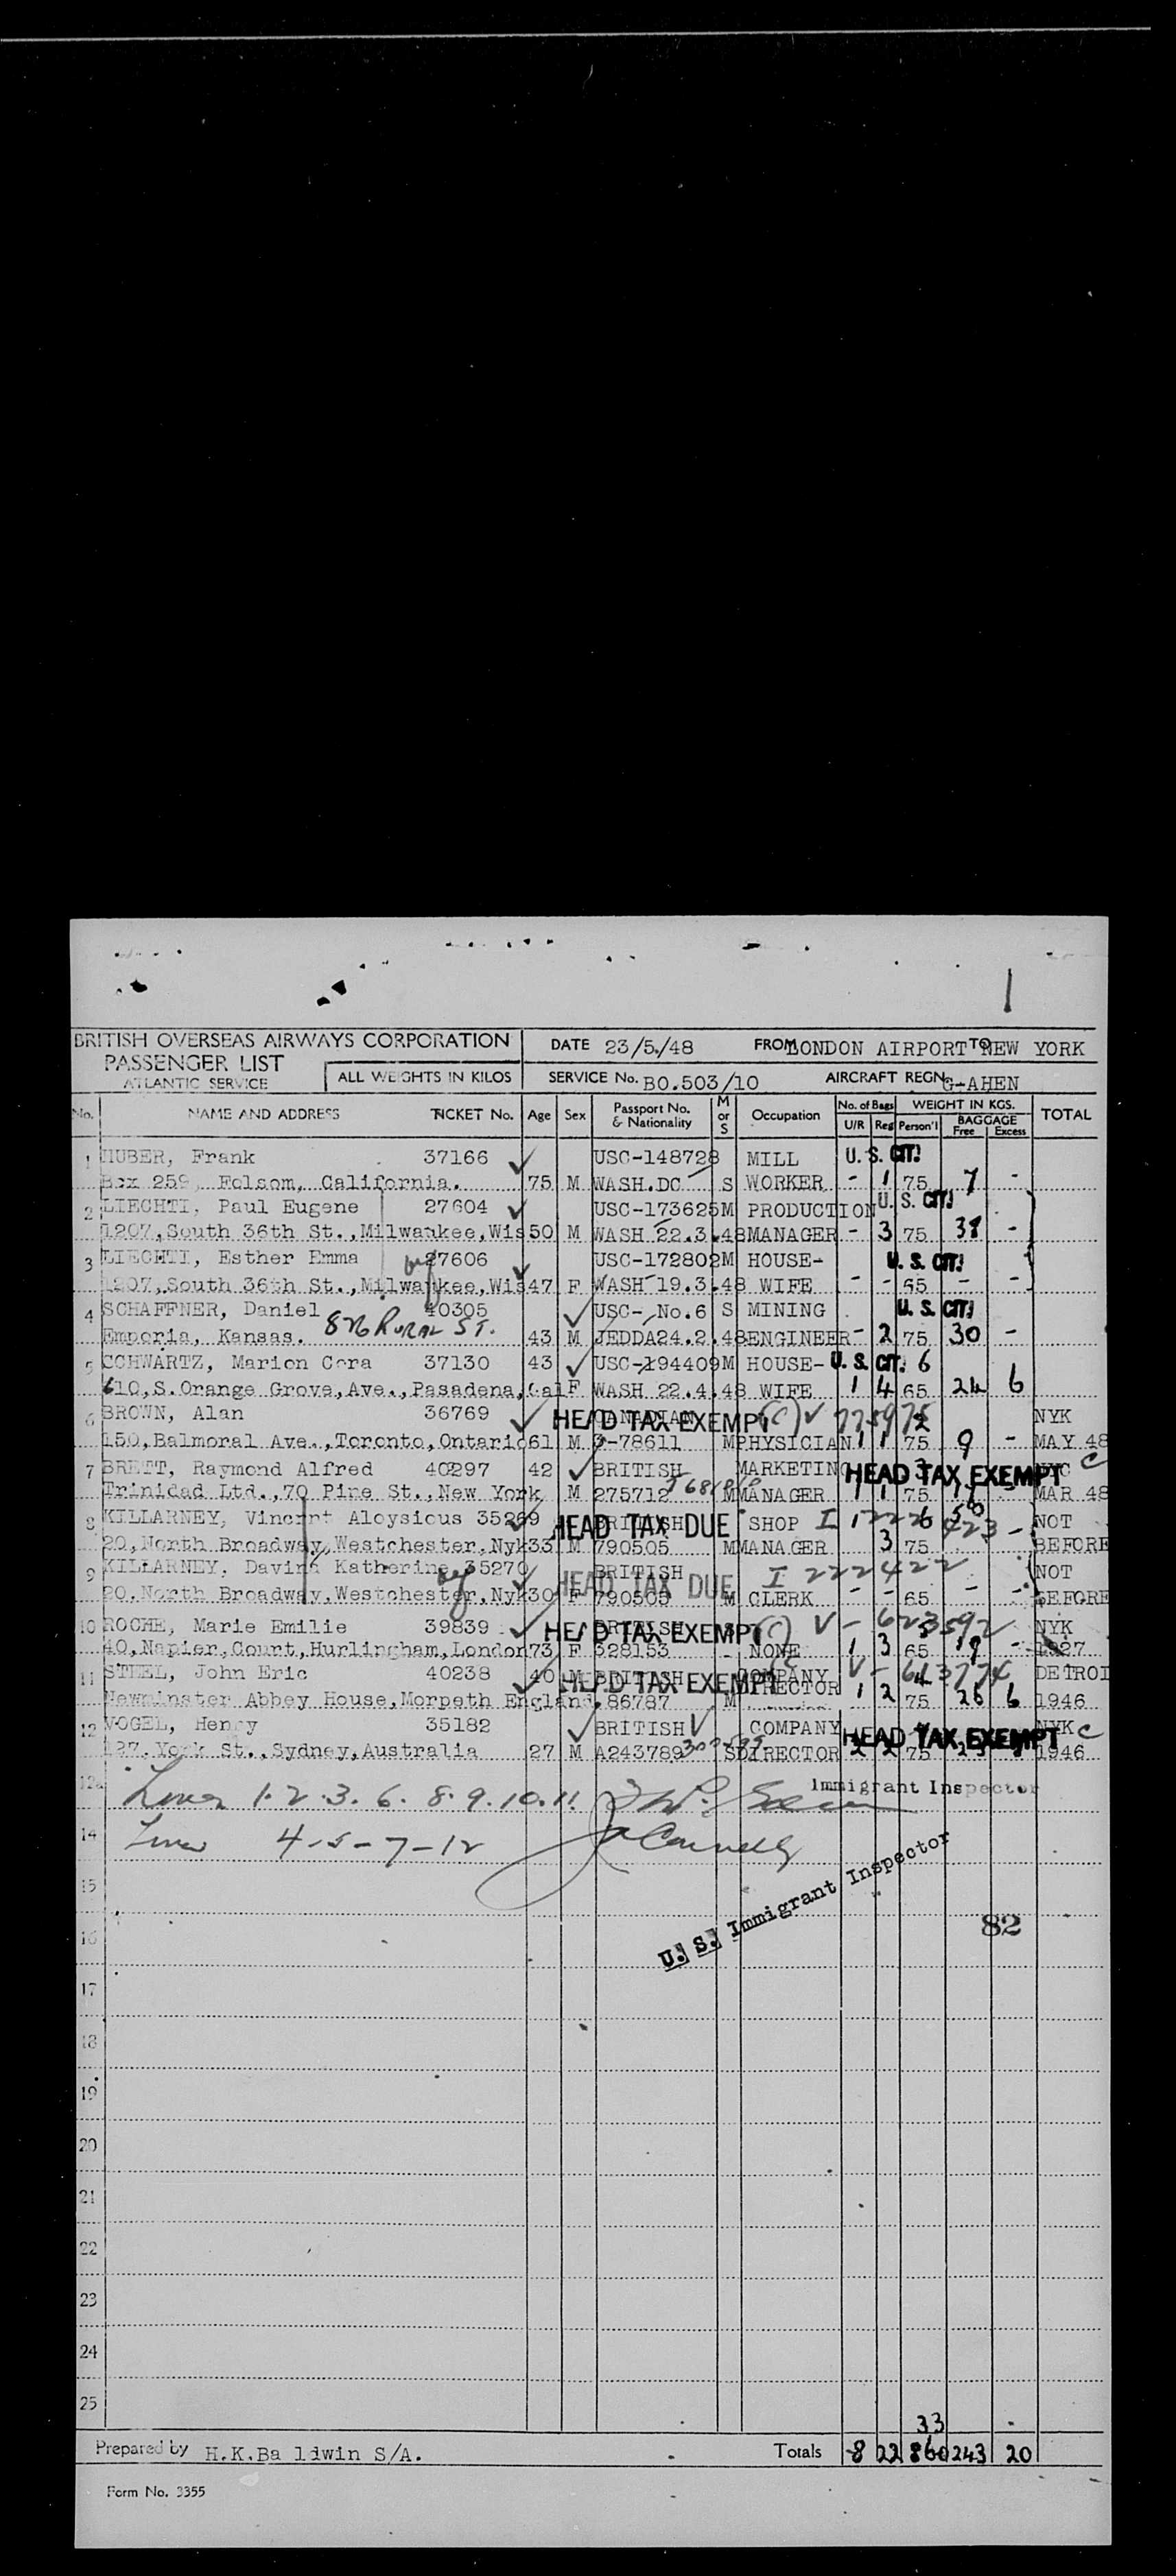 BRITISH OVERSEAS AIRWAYS CORPORATION
PASSENGER LIST
ATLANTIC SERVICE
ALL WEIGHTS IN KILOS
DATE 23/5./48 FROM LONDON AIRPORT TO NEW YORK
SERVICE No. BO.503/10 AIRCRAFT REGN. G-AHEN
No. NAME AND ADDRESS TICKET No. Age Sex Passport No. & Nationality M or S Occupation No. of Bags U/R Reg WEIGHT IN KGS. Person'l BAGGAGE Free Excess TOTAL
1 HUBER, Frank 37166 USC-148728 MILL U. S. CIT.
Box 259, Folsom, California. 75 M WASH.DC S WORKER - 1 75 7 -
2 LIECHTI, Paul Eugene 27604 USC-173625 M PRODUCTION U. S. CIT.
1207,South 36th St.,Milwaukee,Wis 50 M WASH 22.3.48 MANAGER - 3 75 38 -
3 LIECHTI, Esther Emma 27606 USC-172802 M HOUSE- U. S. CIT.
1207,South 36th St.,Milwaukee,Wis 47 F WASH 19.3.48 WIFE - - 65 - -
4 SCHAFFNER, Daniel 40305 USC- No.6 S MINING U. S. CIT.
Emporia, Kansas. 826 RURAL ST. 43 M JEDDA24.2.48 ENGINEER - 2 75 30 -
5 SCHWARTZ, Marion Cora 37130 43 USC-194409 M HOUSE- U. S. CIT. 6
610,S.Orange Grove,Ave.,Pasadena,Cal F WASH 22.4.48 WIFE 1 4 65 24 6
6 BROWN, Alan 36769 CANADIAN HEAD TAX EXEMPT (C) V NYK
150,Balmoral Ave.,Toronto,Ontario 61 M 3-78611 M PHYSICIAN 1 1 75 9 - MAY 48
7 BRETT, Raymond Alfred 40297 42 BRITISH MARKETING HEAD TAX EXEMPT C
Trinidad Ltd.,70 Pine St.,New York M 275712 M MANAGER 1 1 75 MAR 48
8 KILLARNEY, Vincent Aloysious 35269 BRITISH HEAD TAX DUE SHOP NOT
20,North Broadway,Westchester,Nyk 33 M 790505 M MANAGER 3 75 BEFORE
9 KILLARNEY, Davina Katherine 35270 BRITISH HEAD TAX DUE I 222422 NOT
20,North Broadway,Westchester,Nyk 30 F 790505 M CLERK - - 65 - - BEFORE
10 ROCHE, Marie Emilie 39839 BRITISH HEAD TAX EXEMPT (C) V - 623592 NYK
40,Napier,Court,Hurlingham,London 73 F 328153 - NONE 1 3 65 19 - 1927
11 STEEL, John Eric 40238 40 M BRITISH HEAD TAX EXEMPT COMPANY DETROI
Newminster Abbey House,Morpeth England. 86787 M DIRECTOR 1 2 75 26 6 1946
12 VOGEL, Henry 35182 BRITISH COMPANY HEAD TAX EXEMPT NYK C
127,York St.,Sydney,Australia 27 M A243789 S DIRECTOR 2 2 75 1946
12a Lines 1.2.3.6.8.9.10.11. Immigrant Inspector
14 Lines 4-5-7-12
15 U. S. Immigrant Inspector
16 82
17
18
19
20
21
22
23
24
25
33
Prepared by H.K.Baldwin S/A. Totals 8 22 860 243 20
Form No. 3355